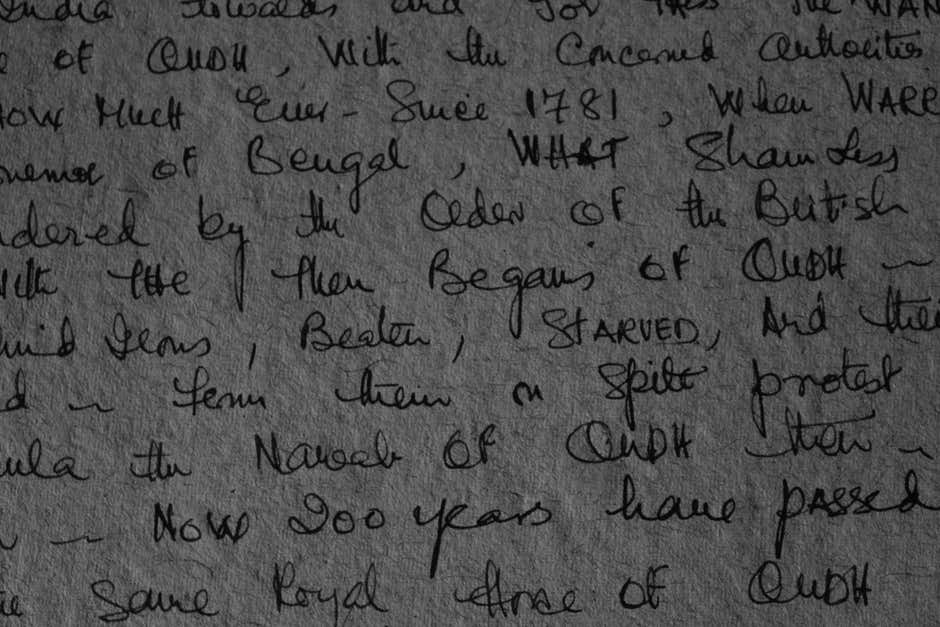 India towards and for this the WAN
e of OUDH, With the Concerned Authorities
How Much Ever - Since 1781, When WARR
vernor of Bengal, WHAT Shamless
dered by the Order of the British
with the then Begams of OUDH ~
Irons, Beaten, STARVED, And their
d ~ from them in Spite protest
ula the Nawab OF OUDH then ~
~ NOW 200 years have passed
Same Royal House OF OUDH